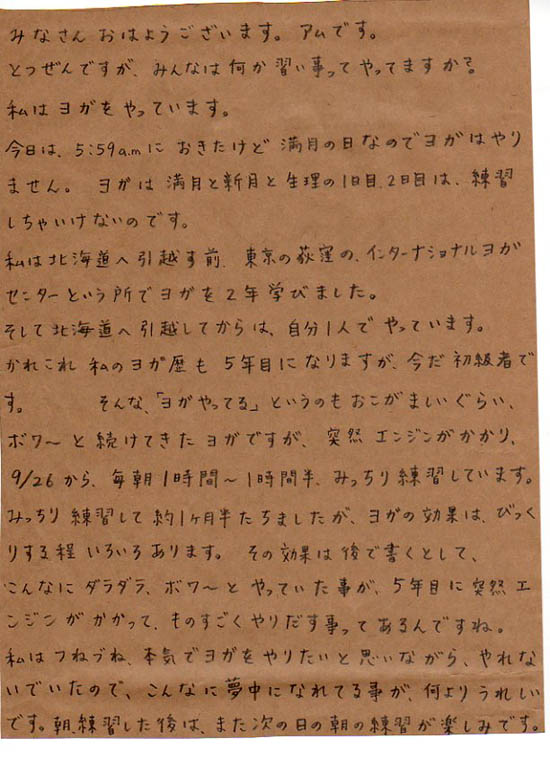 みなさん おはようございます。アムです。
とつぜんですが、みんなは何か習い事ってやってますか？
私はヨガをやっています。
今日は、5:59a.mにおきたけど 満月の日なのでヨガはやり
ません。 ヨガは満月と新月と生理の1日目、2日目は、練習
しちゃいけないのです。
私は北海道へ引越す前、東京の荻窪の、インターナショナルヨガ
センターという所でヨガを2年学びました。
そして北海道へ引越してからは、自分1人でやっています。
かれこれ 私のヨガ歴も 5年目になりますが、今だ初級者で
す。 そんな、「ヨガやってる」というのもおこがましいぐらい、
ボワ〜と続けてきたヨガですが、突然エンジンがかかり、
9/26から、毎朝1時間〜1時間半、みっちり練習しています。
みっちり練習して約1ヶ月半たちましたが、ヨガの効果は、びっく
りする程いろいろあります。 その効果は後で書くとして、
こんなにダラダラ、ボワ〜とやっていた事が、5年目に突然エ
ンジンがかかって、ものすごくやりだす事ってあるんですね。
私はつねづね、本気でヨガをやりたいと思いながら、やれな
いでいたので、こんなに夢中になれてる事が、何よりうれしい
です。朝、練習した後は、また次の日の朝の練習が楽しみです。